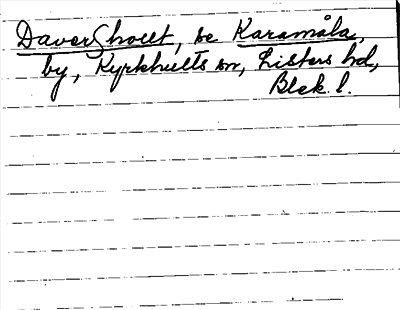 Davershoult, se Karamåla,
by, Kyrkhults sn, Listers hd,
Blek. l.